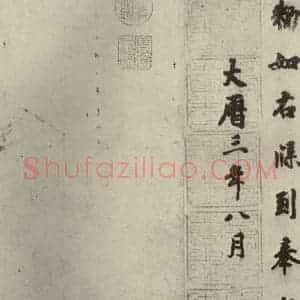 勑如右牒到奉
大曆三年八月
Shufaziliao.com